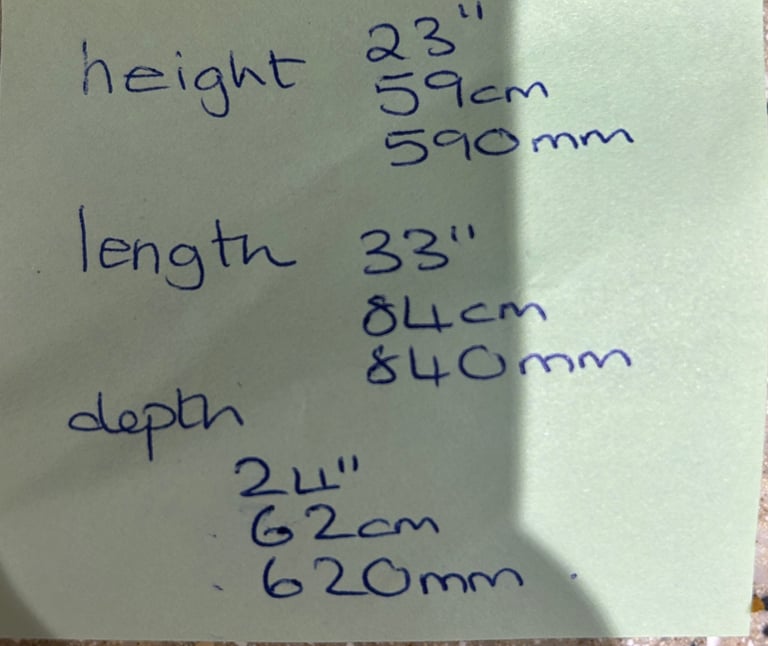 height 23"
59cm
590mm
length 33"
84cm
840mm
depth
24"
62cm
620mm